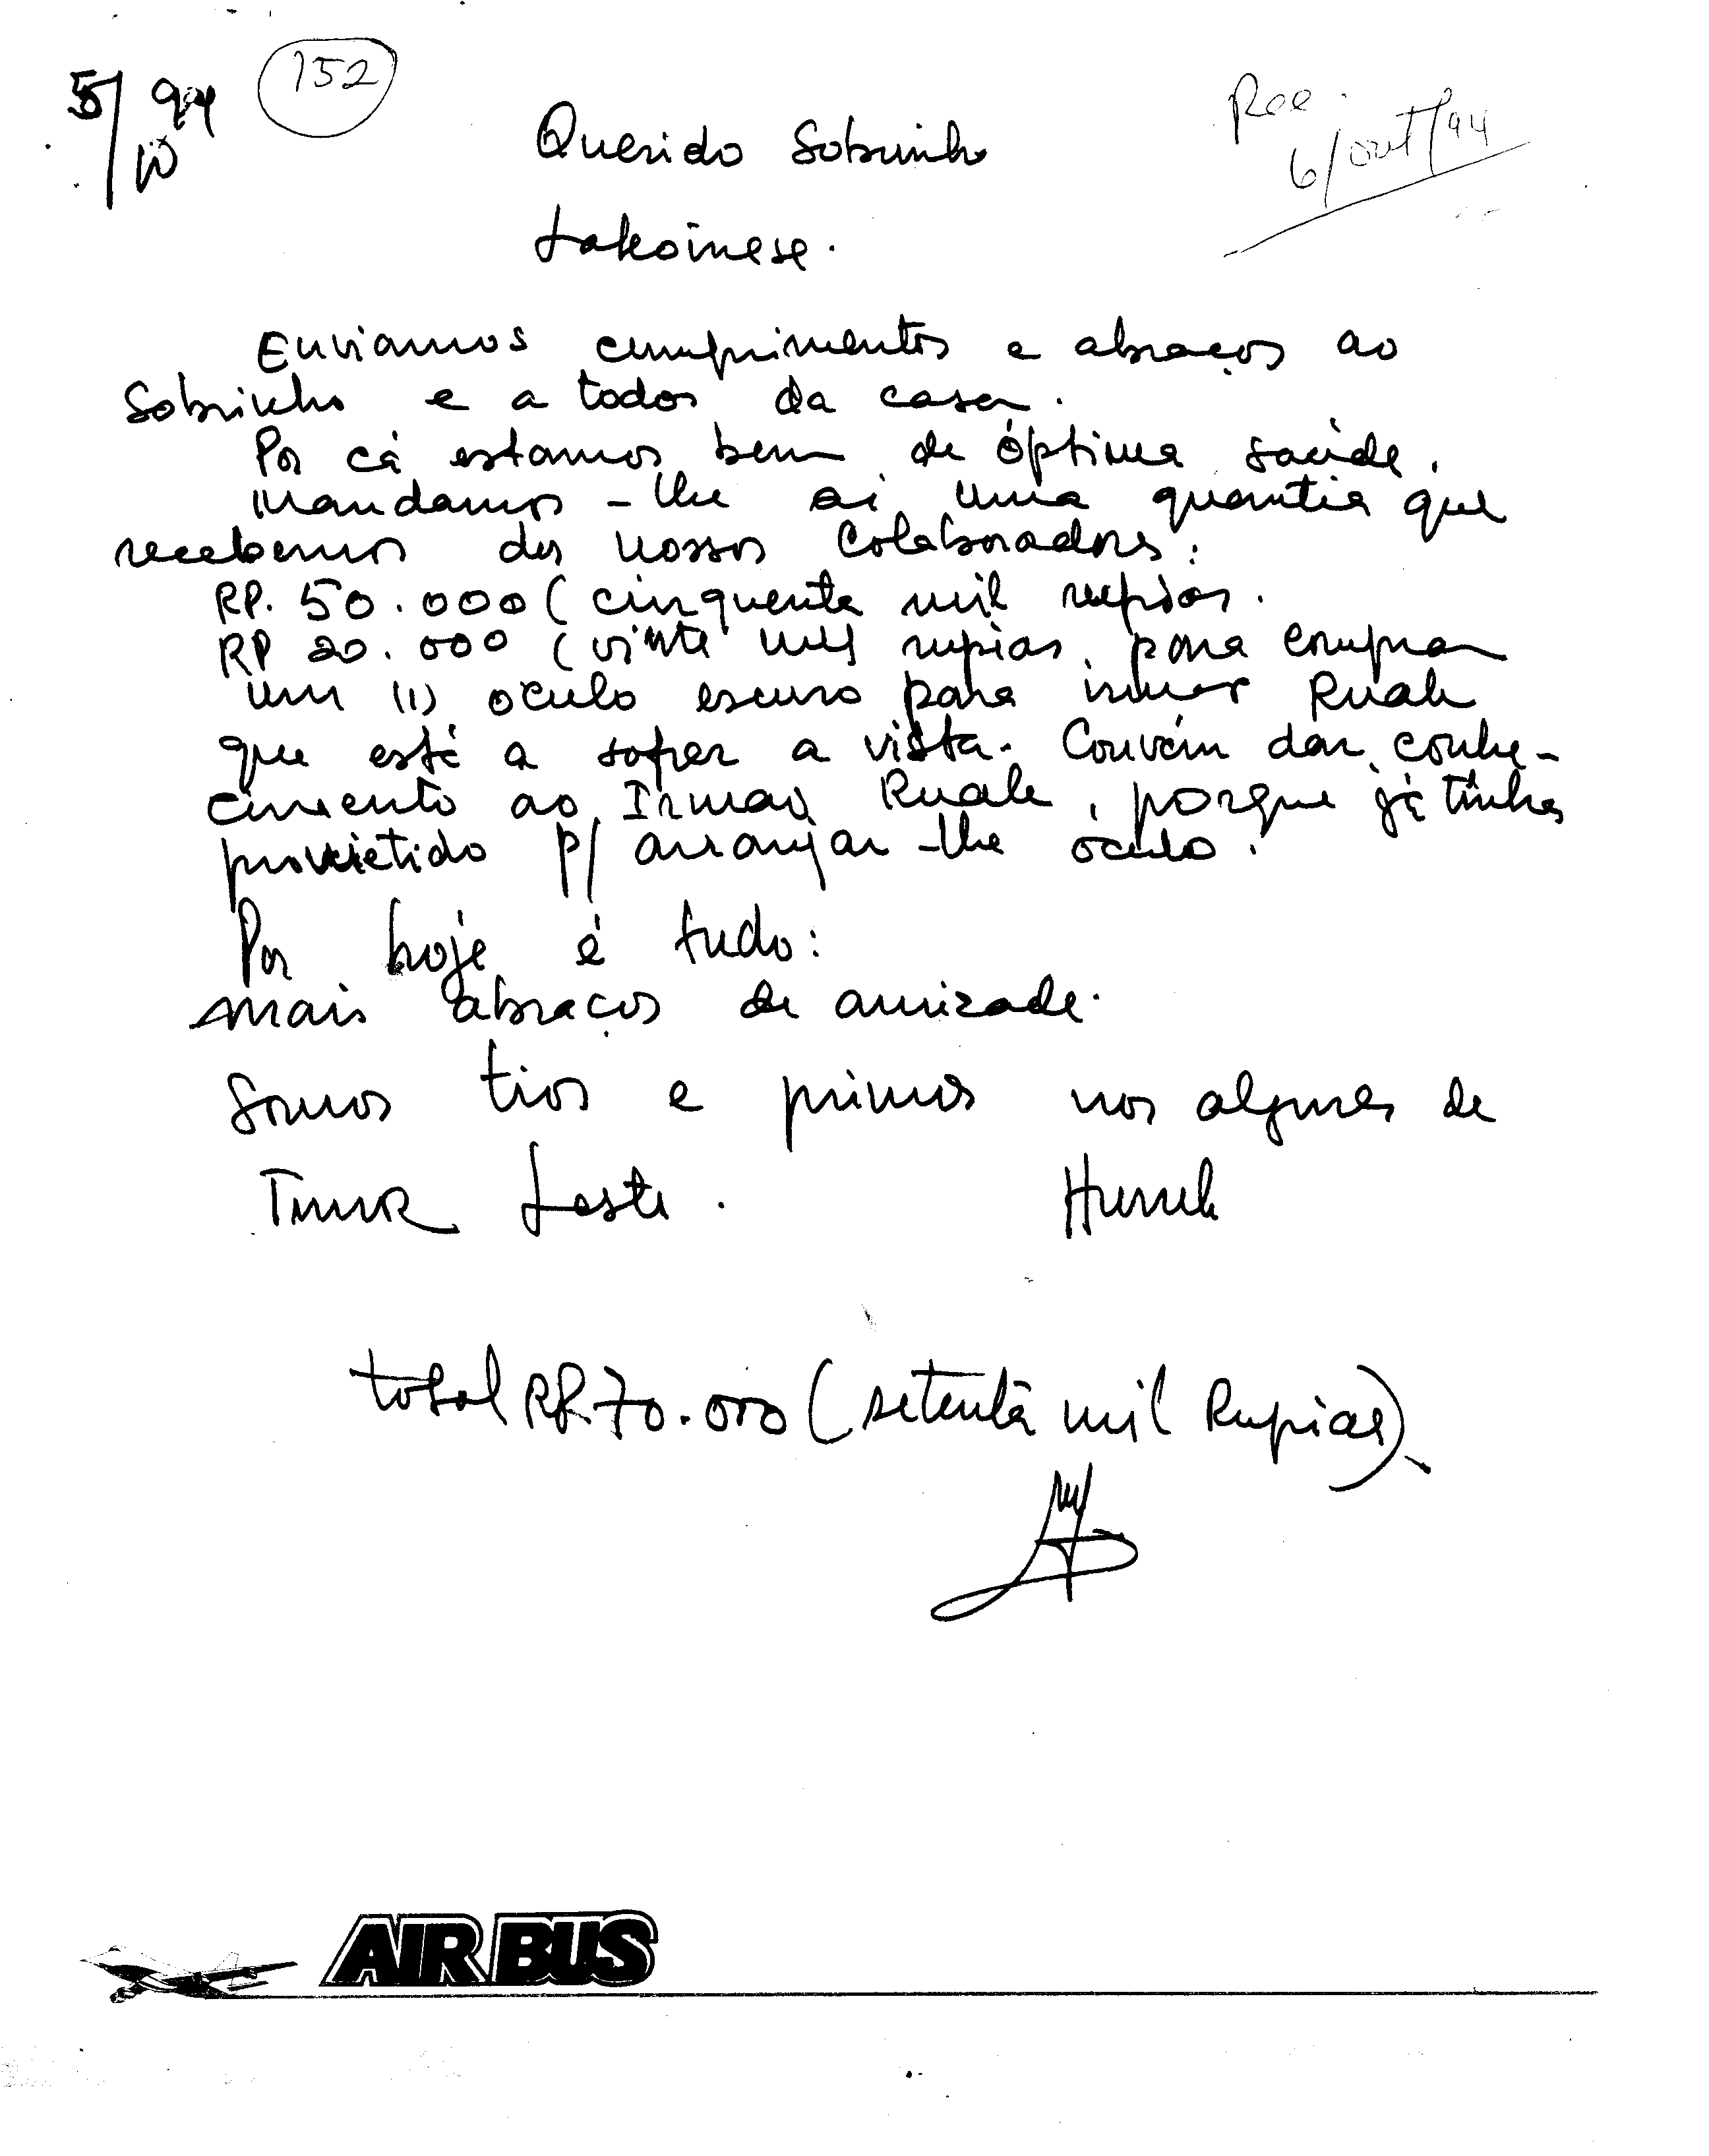 5/10 94
152
Rec.
6/out/94
Querido Sobrinho
Lakoinese.
Enviamos cumprimentos e abraços ao
Sobrinho e a todos da casa.
Por cá estamos bem de óptima saúde.
Mandamos-lhe aí uma quantia que
recebemos dos nossos Colaboradores:
RP. 50.000 (cinquenta mil rupias.
RP 20.000 (vinte mil rupias, para comprar
um (1) oculo escuro para irmão Ruak
que está a sofrer a vista. Convém dar conhe-
cimento ao Irmão Ruak, porque já tinha
prometido p/ arranjar-lhe óculo.
Por hoje é tudo:
Mais abraços de amizade.
Somos tios e primos nos algures de
Timor Leste.
total RP. 70.000 (setenta mil Rupias).
AIR BUS